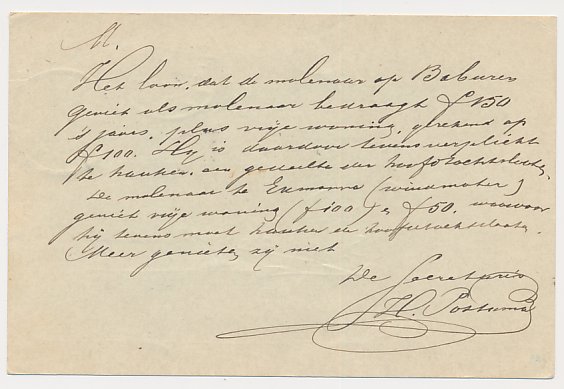 M.
Het loon, dat de molenaar op Baburen
geniet als molenaar bedraagt f 150
's jaars, plus vrije woning, gerekend op
f 100. Hij is daardoor tevens verplicht
te houden een gedeelte der hoofdtochtsloten.
De molenaar te Exmorra (windmotor)
geniet vrije woning (f 100) en f 50. waarvoor
hij tevens moet houden de hoofdtochtsloten.
Meer genieten zij niet
De Secretaris
H. Postuma